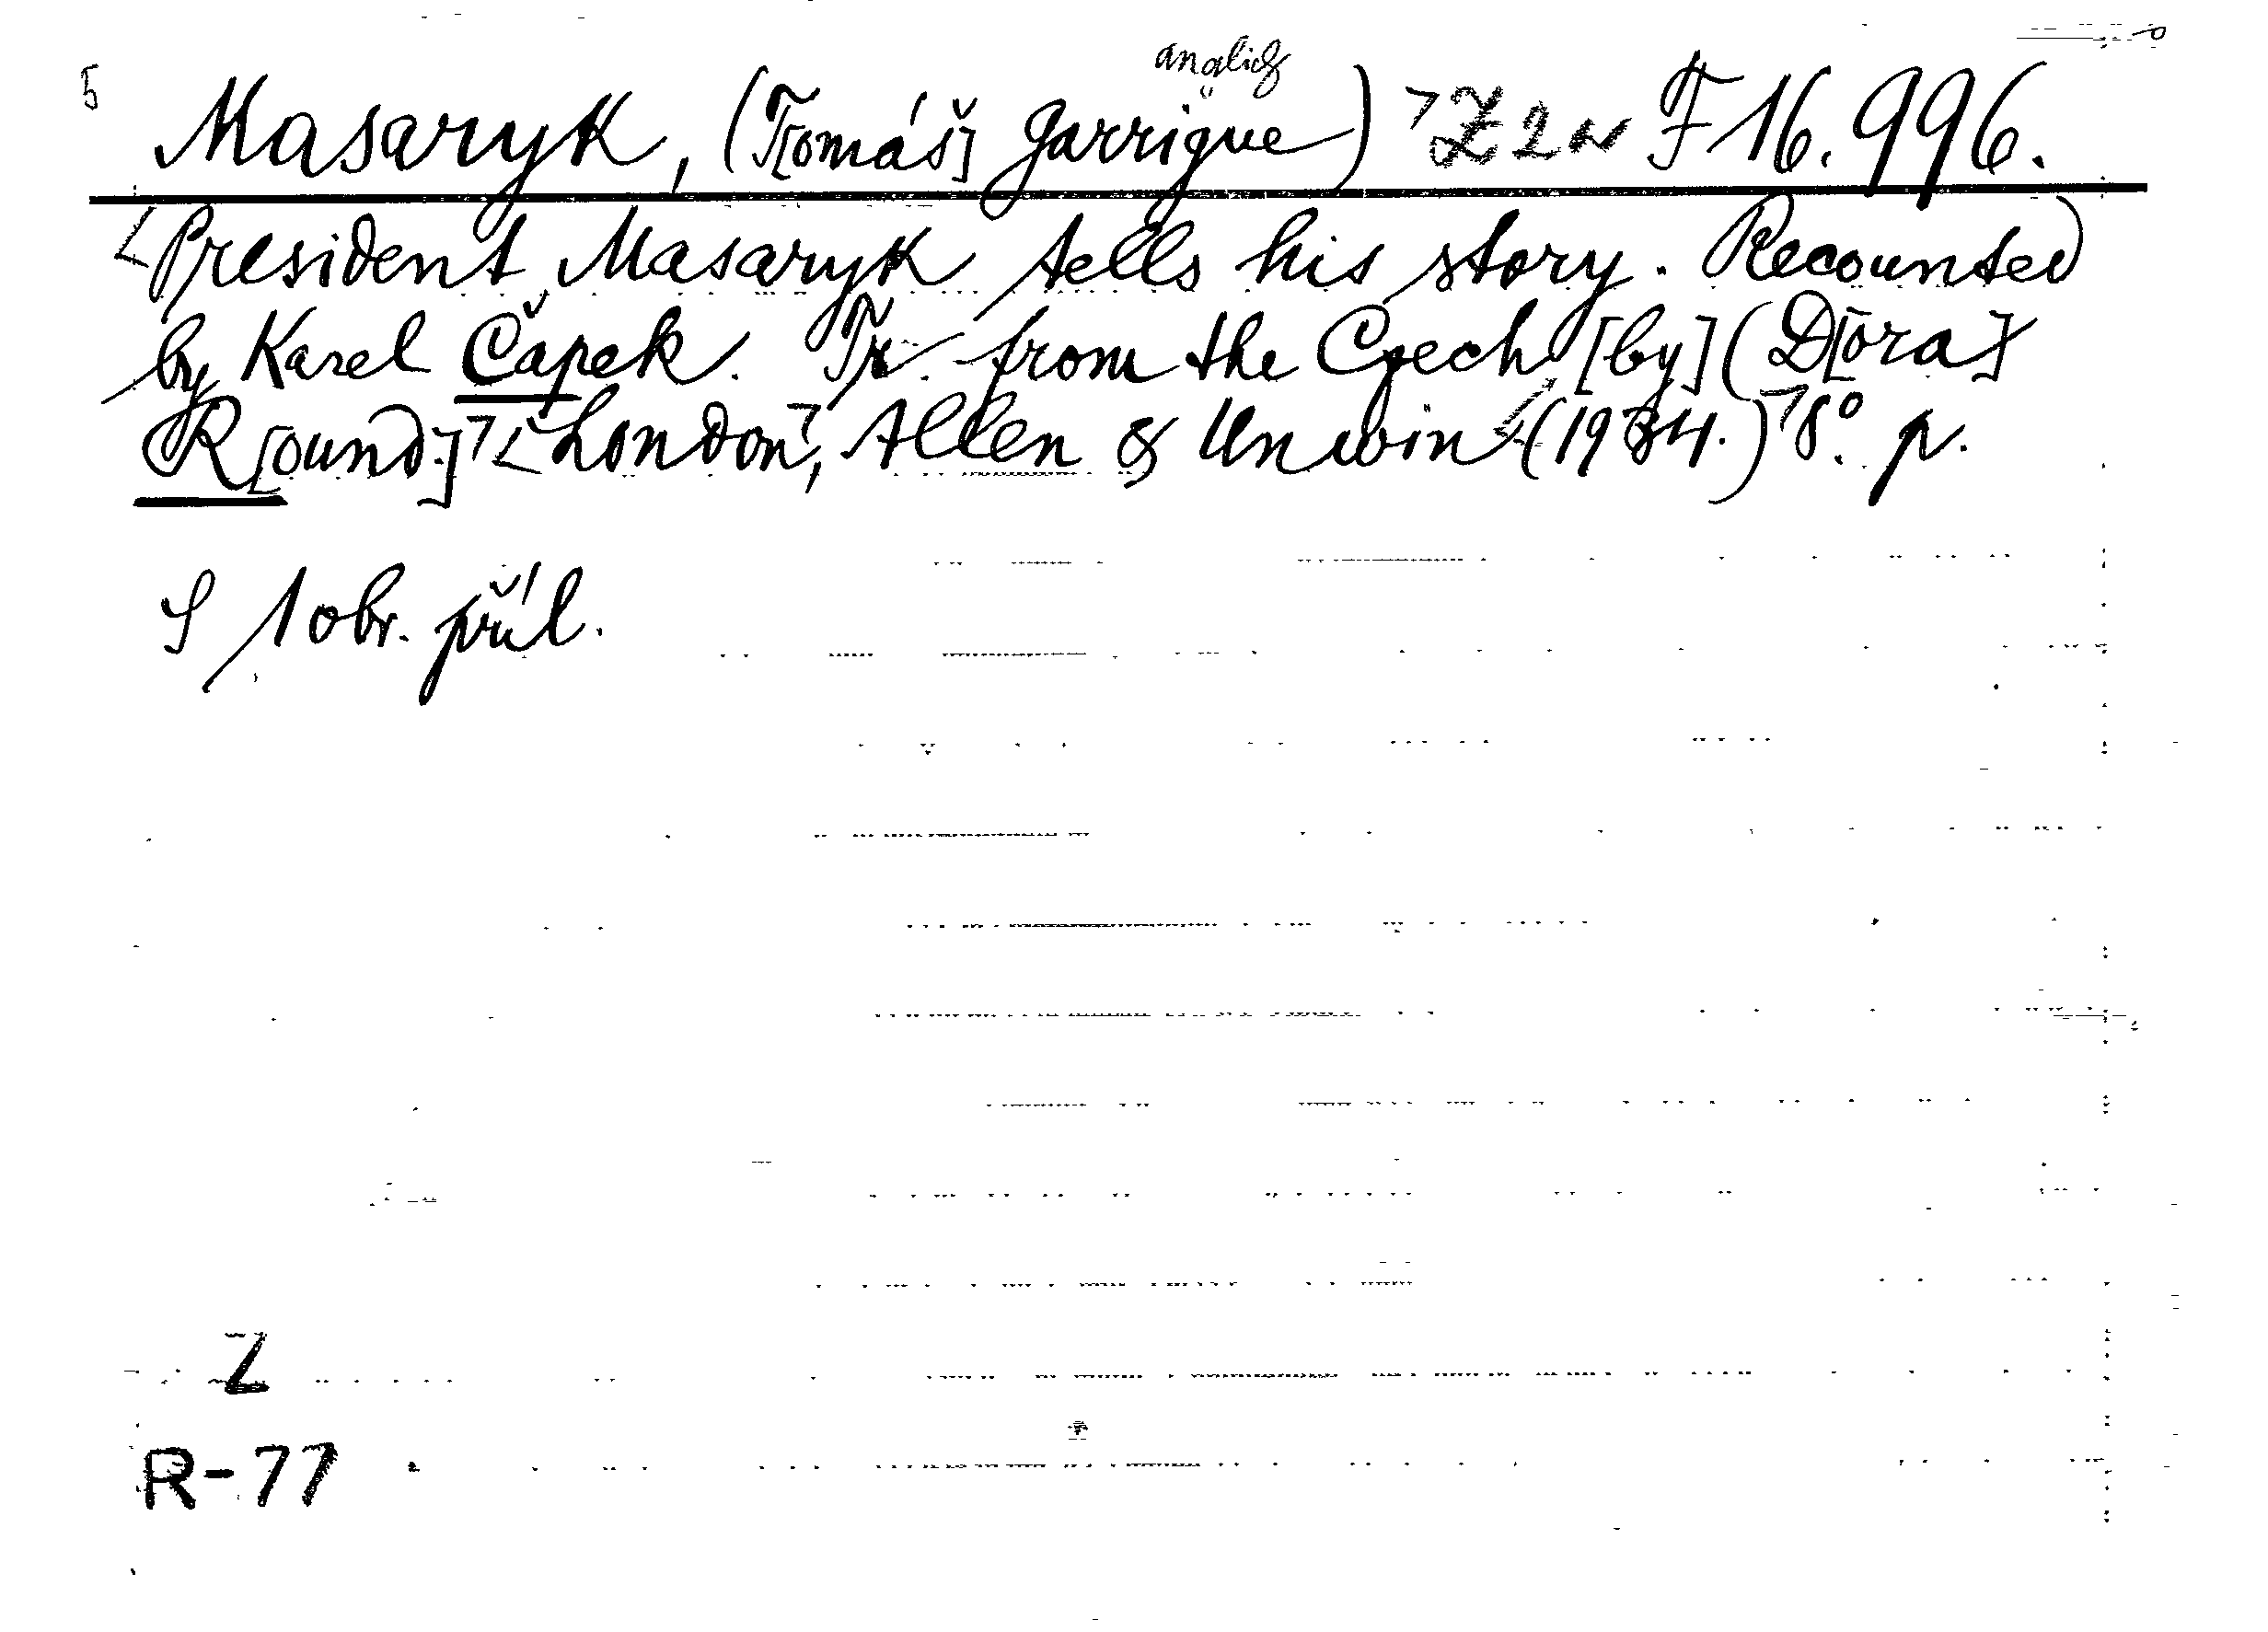 anglicky
5 Masaryk, (T[omáš] Garrigue) Z 2 N F 16.996.
President Masaryk tells his story. Recounted
by Karel Čapek. Tr. from the Czech [by] (D[ora]
R[ound.] London, Allen & Unwin (1934.) 8°. p.
S 1 obr. příl.
Z
R-77